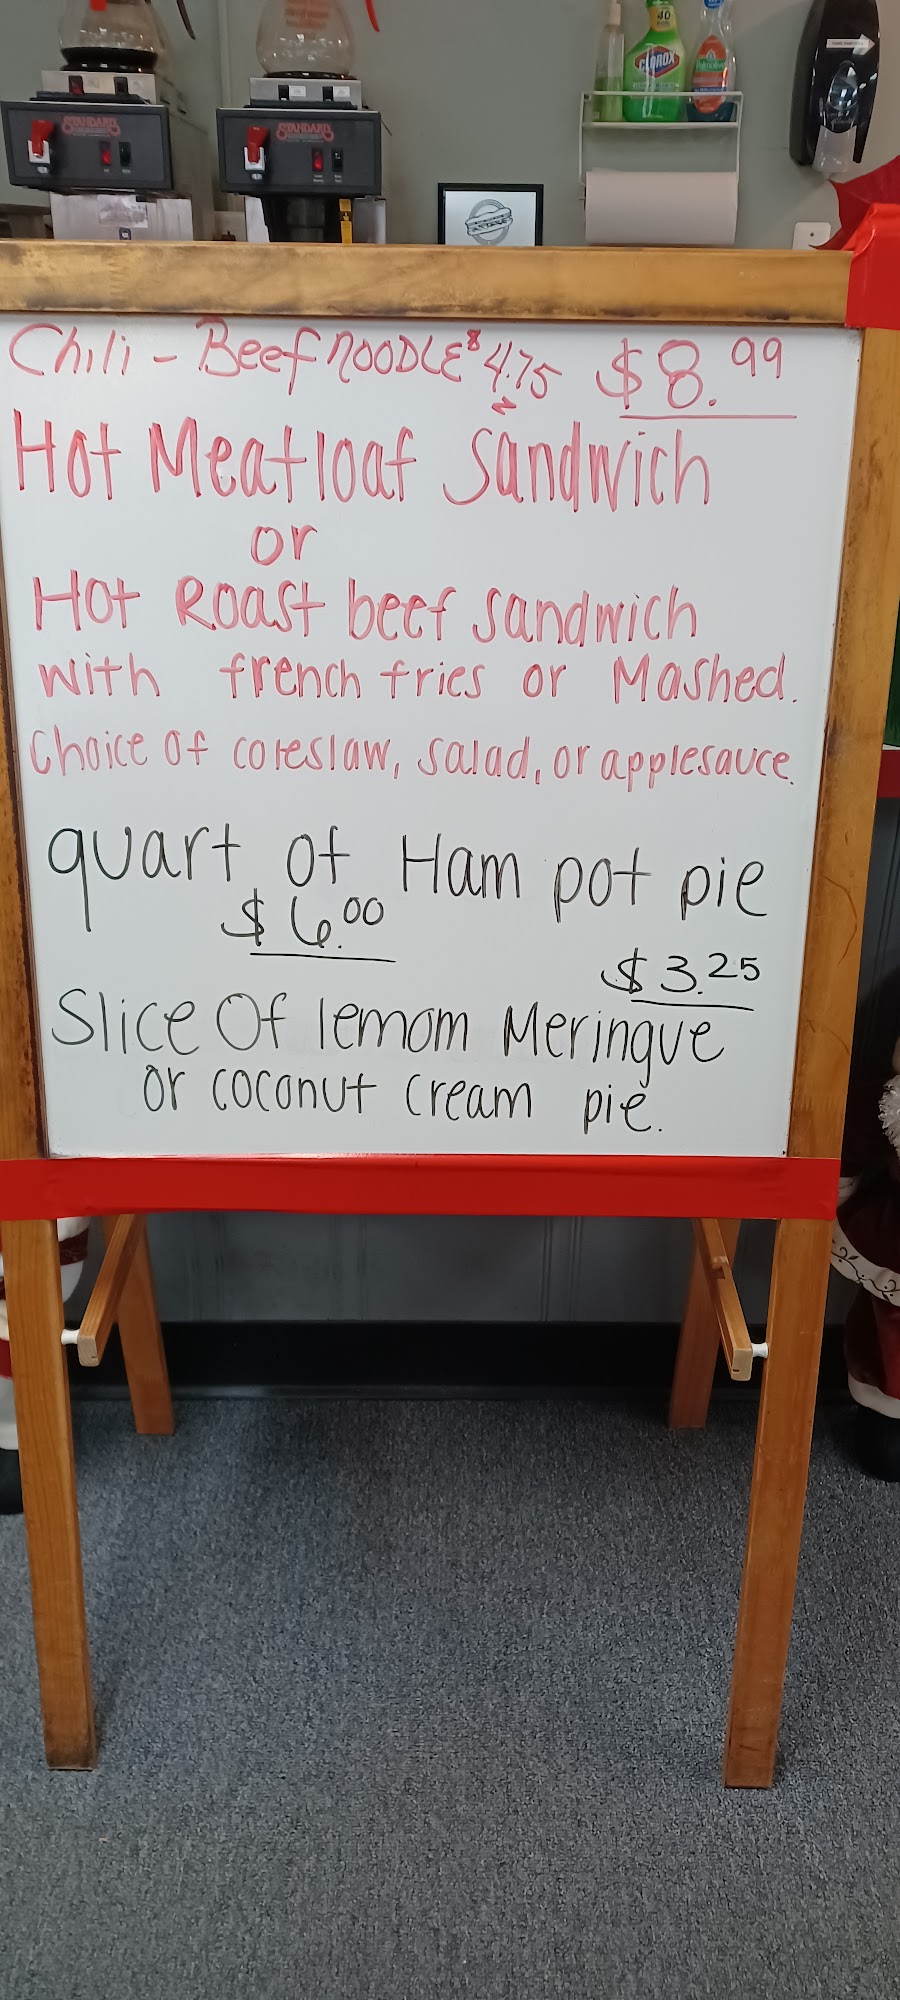 STANDARD
STANDARD
CLOROX
Palmolive
Chili - Beef NOODLE $4.75 $8.99
Hot Meatloaf Sandwich
or
Hot Roast beef sandwich
with french fries or Mashed.
Choice of coleslaw, salad, or applesauce.
quart of Ham pot pie
$6.00
$3.25
Slice Of lemom Meringue
or coconut cream pie.